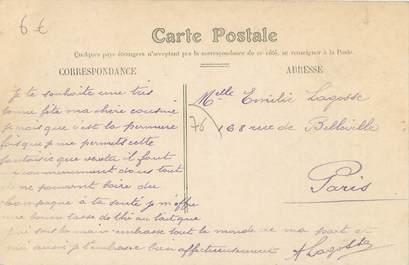 6 €
Carte Postale
Quelques pays étrangers n'acceptent pas la correspondance de ce côté, se renseigner à la Poste.
CORRESPONDANCE
ADRESSE
je te souhaite une très
bonne fête ma chère cousine
je crois que c'est la première
fois que je me permets cette
fantaisie que veux tu il faut
commencement dans tout
ne pouvant boire du
champagne à ta santé je m'offre
une bonne tasse de thé
embrasse tout le monde de ma part et
moi aussi je t'embrasse bien affectueusement
A Lagosse
Melle Emilie Lagosse
76
168 rue de Belleville
Paris